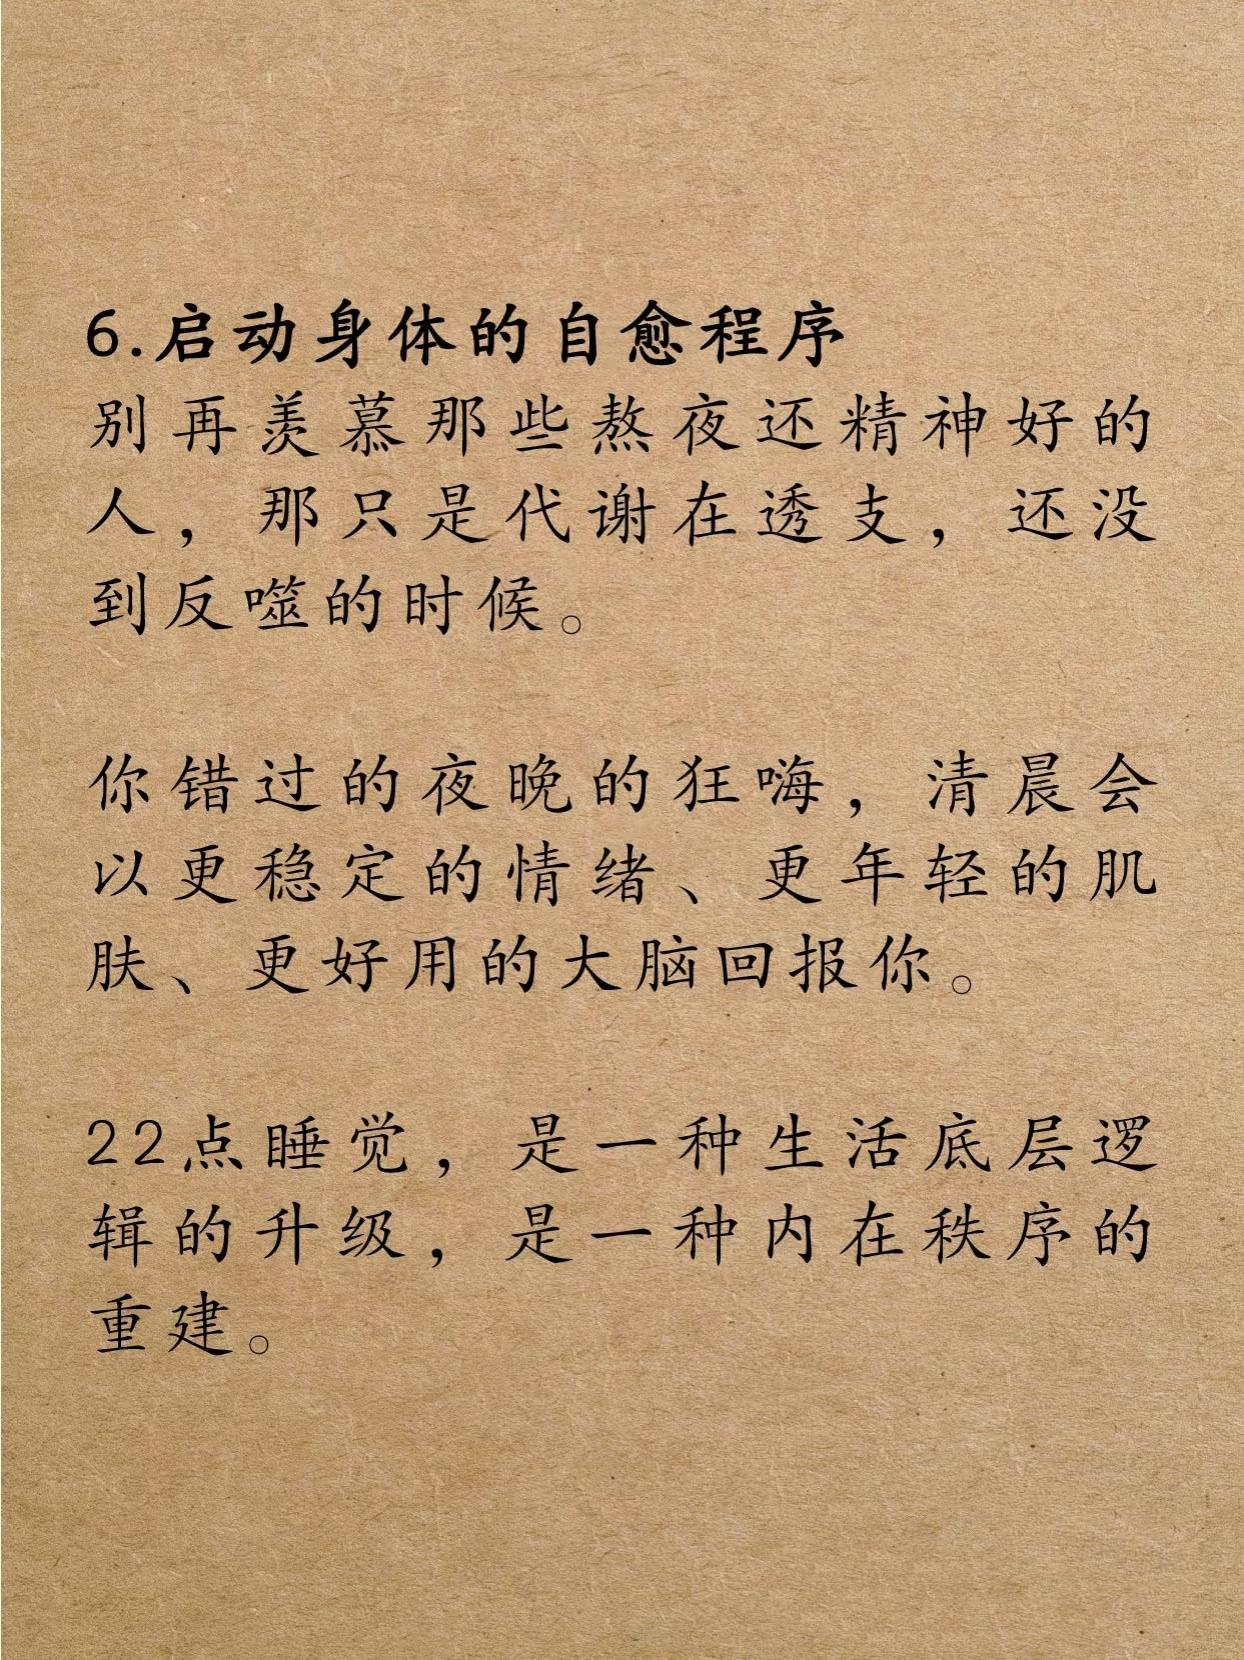 6.启动身体的自愈程序
别再羡慕那些熬夜还精神好的
人，那只是代谢在透支，还没
到反噬的时候。
你错过的夜晚的狂嗨，清晨会
以更稳定的情绪、更年轻的肌
肤、更好用的大脑回报你。
22点睡觉，是一种生活底层逻
辑的升级，是一种内在秩序的
重建。